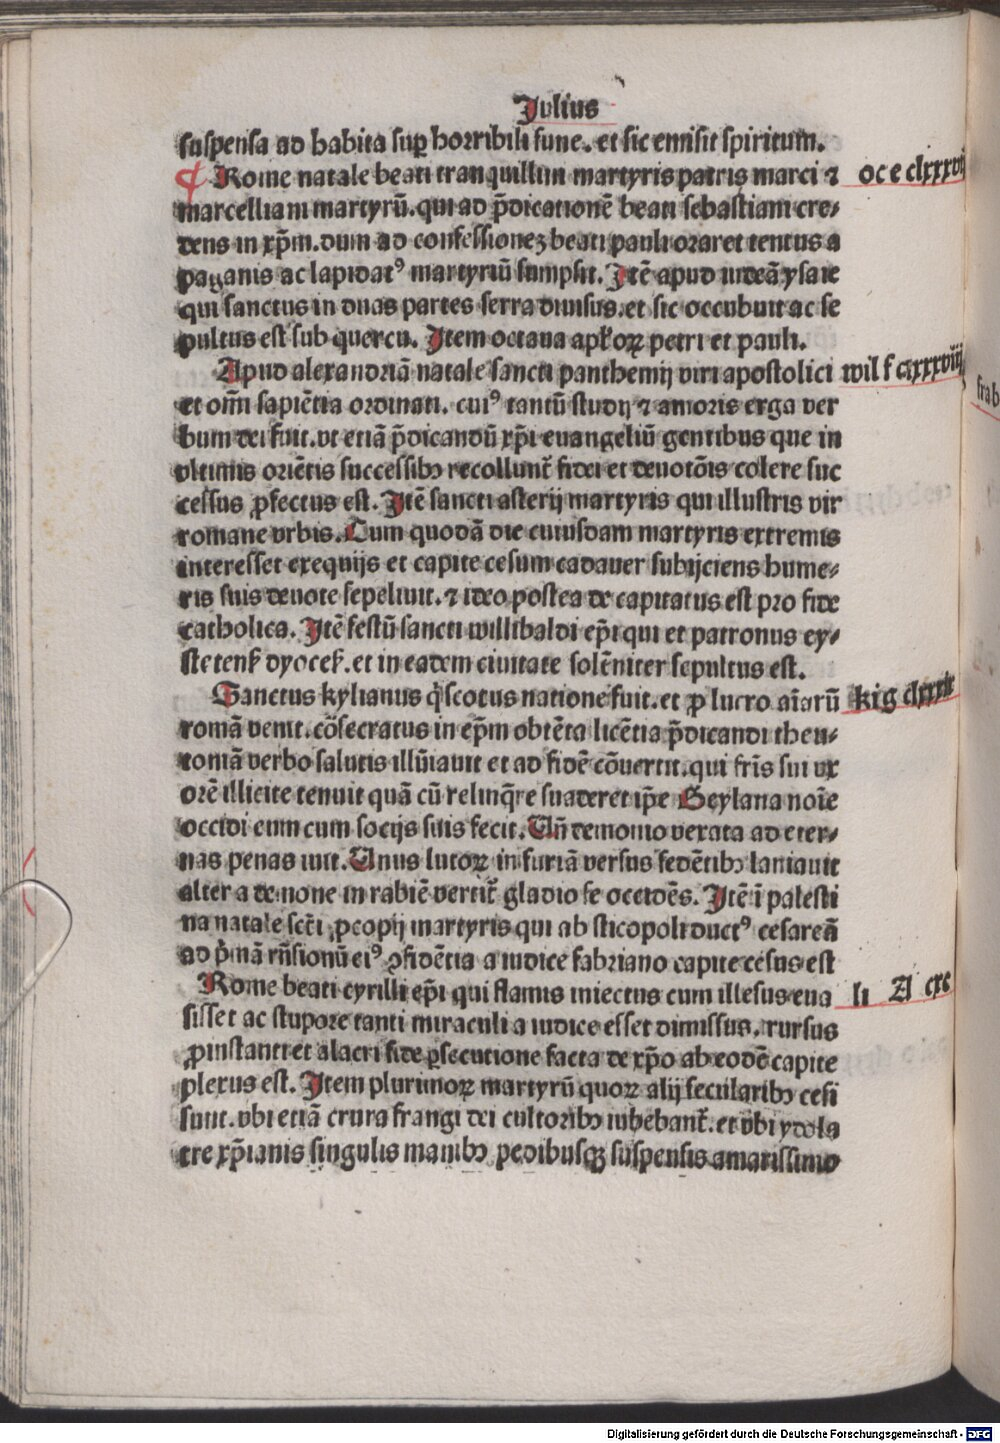 Julius
suspensa ad habita sup̄ horribili fune. et sic emisit spiritum.
¶ Rome natale beati tranquillini martyris patris marci ⁊ oc e clxxxvij
marcelliani martyrū. qui ad p̄dicationē beati sebastiani cre⸗
dens in xp̄m. dum ad confessionez beati pauli oraret tentus a
paganis ac lapidatꝰ martyriū sumpsit. Itē apud iudeā ysaie
qui sanctus in duas partes serra diuisus. et sic occubuit ac se
pultus est sub quercu. Item octaua apl'oꝝ petri et pauli.
Apud alexandriā natale sancti panthemij viri apostolici wil f clxxxviij
et om̄i sapiētia ordinati. cuiꝰ tantū studij ⁊ amoris erga ver
bum dei fuit. vt etiā p̄dicandū xp̄i euangeliū gentibus que in
vltimis oriētis successibꝫ recollunt̄ fidei et deuotōis colere suc
cessus ꝓfectus est. Itē sancti asterij martyris qui illustris vir
romane vrbis. Cum quodā die cuiusdam martyris extremis
interesset exequijs et capite cesum cadauer subijciens hume⸗
ris suis deuote sepeliuit. ⁊ ideo postea decapitatus est pro fide
catholica. Itē festū sancti willibaldi ep̄i qui et patronus ey⸗
stetenẜ dyoceẜ. et in eadem ciuitate solēniter sepultus est.
Sanctus kylianus q̇ scotus natione fuit. et ꝓ lucro aīarū kig clxxxix
romā venit. cōsecratus in ep̄m obtēta licētia p̄dicandi theu⸗
toniā verbo salutis illūiauit et ad fidē cōuertit. qui fr̄is sui vx
orē illicite tenuit quā cū relinq̄re suaderet ip̄e Geylana noīe
occidi eum cum socijs suis fecit. Un̄ demonio vexata ad eter⸗
nas penas iuit. Unus lutoꝝ in furiā versus sedētibꝫ laniauit
alter a demone in rabiē vertit̄ gladio se occidēs. Itē ī palesti
na natale sc̄ti ꝓcopij martyris qui ab sticopoli ductꝰ cesareā
ad p̄mā rn̄sionū eiꝰ ꝯfidētia a iudice fabriano capite cesus est
Rome beati cyrilli ep̄i qui flamis iniectus cum illesus eua li A cxc
sisset ac stupore tanti miraculi a iudice esset dimissus, rursus
ꝓ instanti et alacri fide ꝑsecutione facta de xp̄o ab eodē capite
plexus est. Item plurimoꝝ martyrū quoꝝ alij secularibꝫ cesi
sunt. vbi etiā crura frangi dei cultoribꝫ iubebant̄. et vbi ydola
tre xp̄ianis singulis manibꝫ pedibusqꝫ suspensis amarissimo
frab
Digitalisierung gefördert durch die Deutsche Forschungsgemeinschaft - DFG